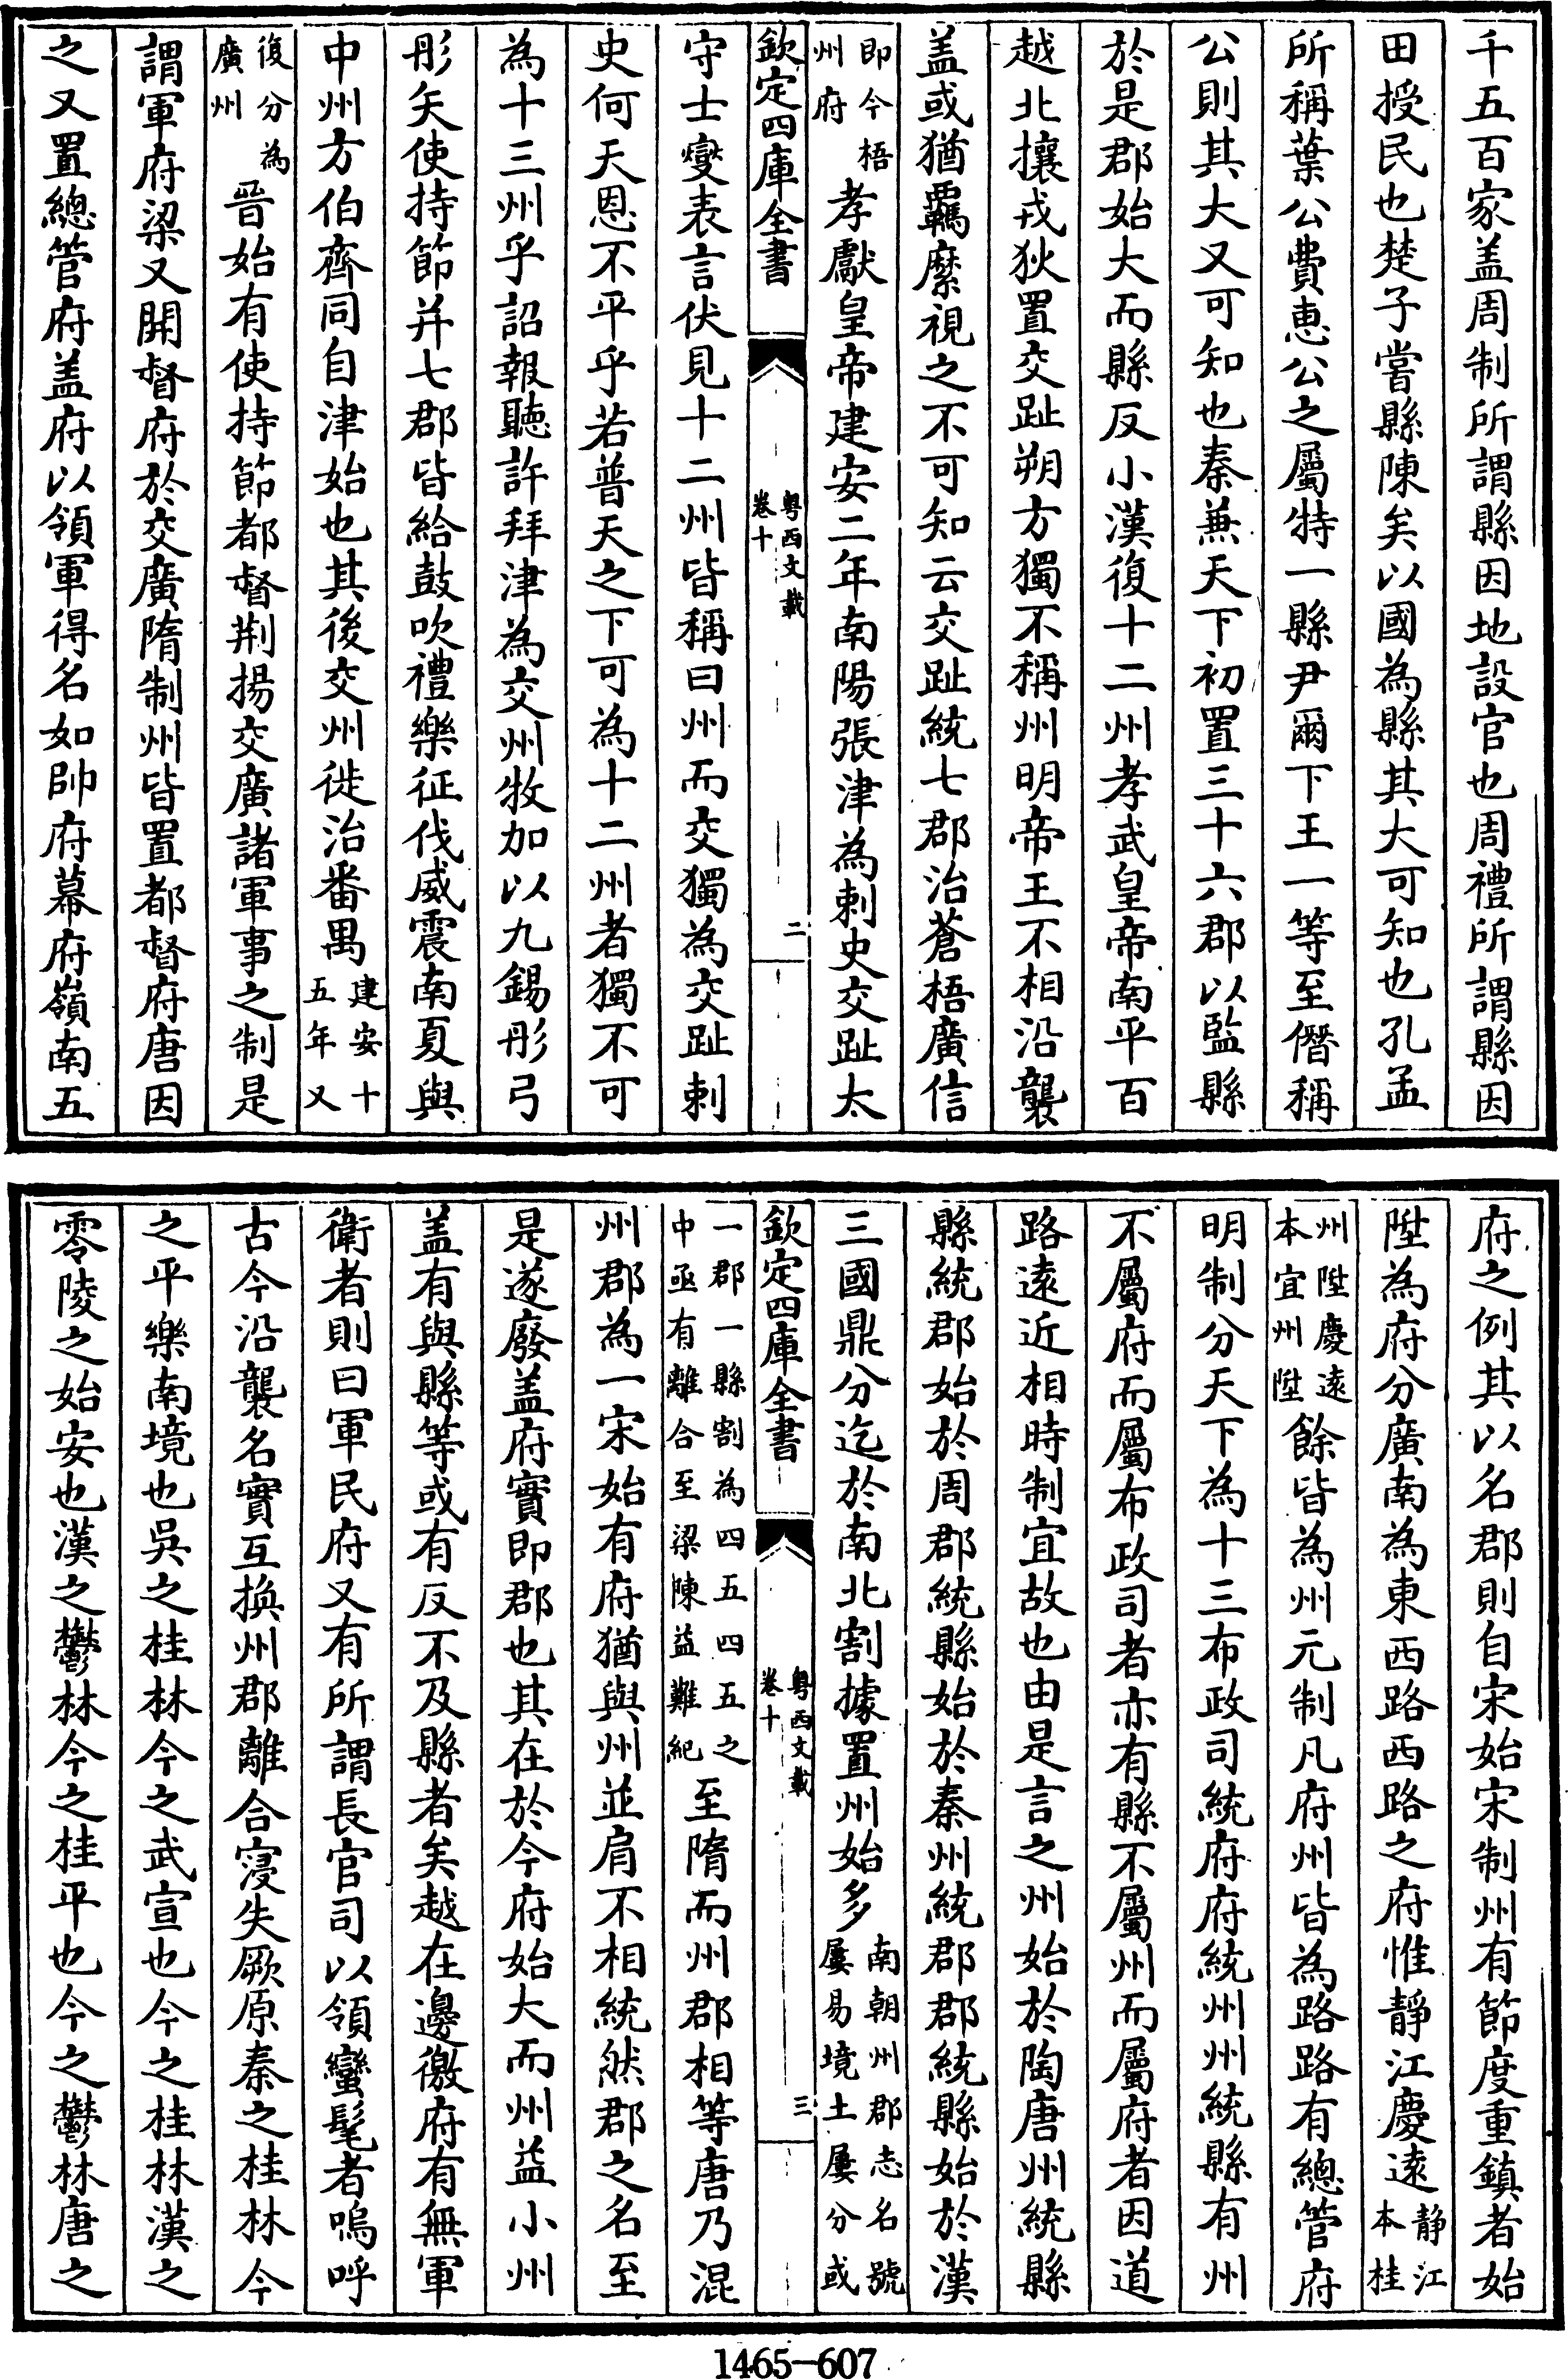 千五百家盖周制所謂縣因地設官也周禮所謂縣因
田授民也楚子嘗縣陳矣以國為縣其大可知也孔孟
所稱葉公費惠公之屬特一縣尹爾下王一等至僭稱
公則其大又可知也秦兼天下初置三十六郡以監縣
於是郡始大而縣反小漢復十二州孝武皇帝南平百
越北攘戎狄置交趾朔方獨不稱州明帝王不相沿襲
盖或猶覊縻視之不可知云交趾統七郡治蒼梧廣信
即今梧
州府
孝獻皇帝建安二年南陽張津為刺史交趾太
欽定四庫全書
粤西文載
卷十
二
守士燮表言伏見十二州皆稱曰州而交獨為交趾刺
史何天恩不平乎若普天之下可為十二州者獨不可
為十三州乎詔報聽許拜津為交州牧加以九錫彤弓
彤矢使持節并七郡皆給鼓吹禮樂征伐威震南夏與
中州方伯齊同自津始也其後交州徙治番禺
建安十
五年又
復分為
廣州
晉始有使持節都督荆揚交廣諸軍事之制是
謂軍府梁又開督府於交廣隋制州皆置都督府唐因
之又置總管府盖府以領軍得名如帥府幕府嶺南五
府之例其以名郡則自宋始宋制州有節度重鎮者始
陞為府分廣南為東西路西路之府惟靜江慶遠
静江
本桂
州陞慶遠
本宜州陞
餘皆為州元制凡府州皆為路路有總管府
明制分天下為十三布政司統府府統州州統縣有州
不屬府而屬布政司者亦有縣不屬州而屬府者因道
路遠近相時制宜故也由是言之州始於陶唐州統縣
縣統郡始於周郡統縣始於秦州統郡郡統縣始於漢
三國鼎分迄於南北割據置州始多
南朝州郡志名號
屢易境土屢分或
欽定四庫全書
粤西文載
卷十
三
一郡一縣割為四五四五之
中亟有離合至梁陳益難紀
至隋而州郡相等唐乃混
州郡為一宋始有府猶與州並肩不相統然郡之名至
是遂廢盖府實即郡也其在於今府始大而州益小州
盖有與縣等或有反不及縣者矣越在邊徼府有無軍
衛者則曰軍民府又有所謂長官司以領蠻髦者嗚呼
古今沿襲名實互換州郡離合寖失厥原秦之桂林今
之平樂南境也吳之桂林今之武宣也今之桂林漢之
零陵之始安也漢之鬱林今之桂平也今之鬱林唐之
1465-607